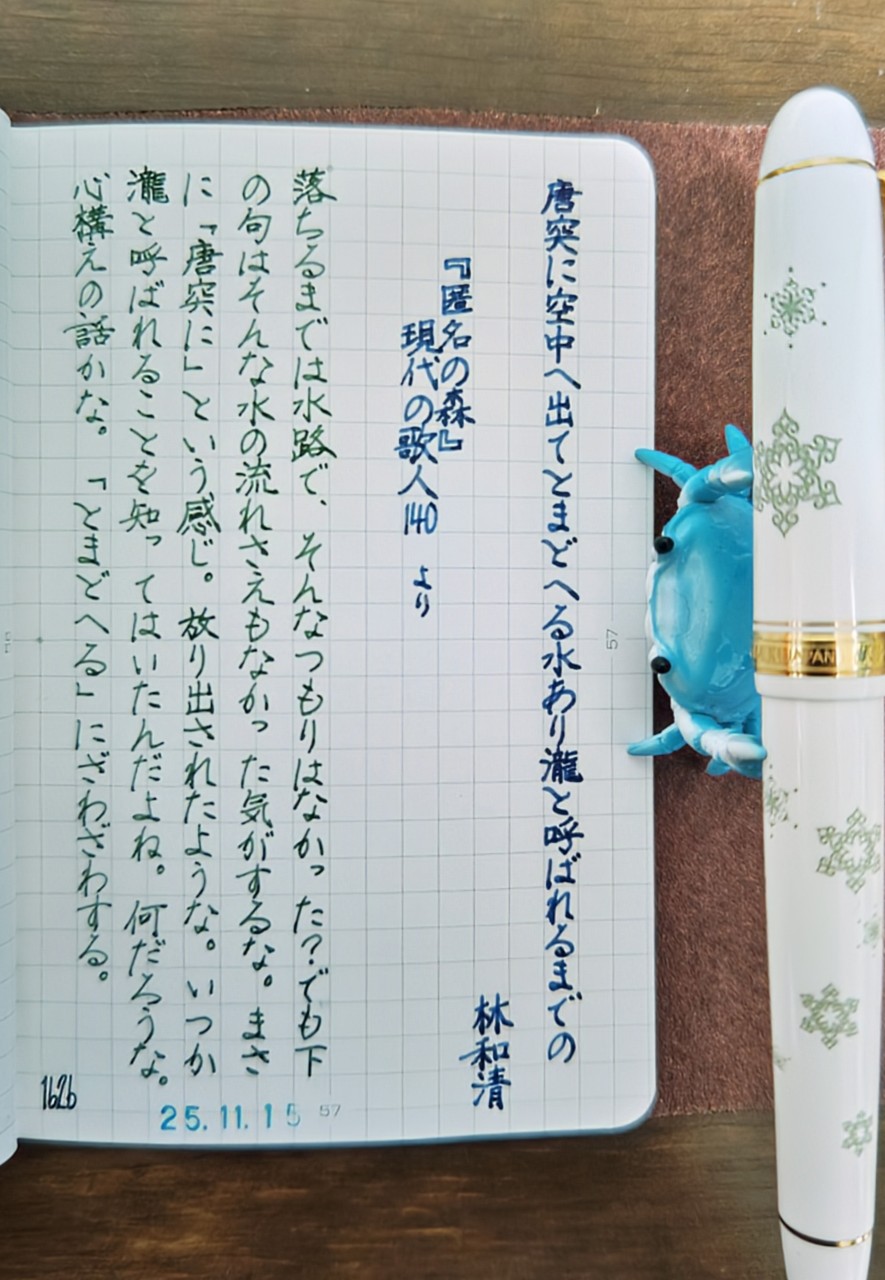 唐突に空中へ出てとまどへる水あり瀧と呼ばれるまでの
林和清
『匿名の森』
現代の歌人140 より
落ちるまでは水路で、そんなつもりはなかった？でも下
の句はそんな水の流れさえもなかった気がするな。まさ
に「唐突に」という感じ。放り出されたような。いつか
瀧と呼ばれることを知ってはいたんだよね。何だろうな。
心構えの話かな。「とまどへる」にざわざわする。
1626
25.11.15
57
57